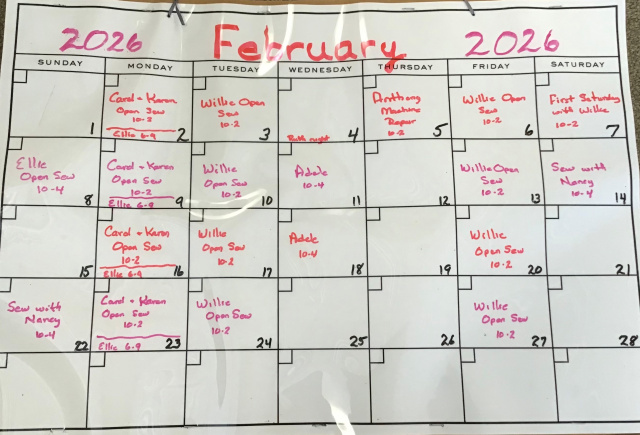 2026 February 2026
SUNDAY MONDAY TUESDAY WEDNESDAY THURSDAY FRIDAY SATURDAY
1
Carol + Karen
Open Sew
10-2
Ellie 6-9
2
Willie Open
Sew
10-2
3
Ruth night
4
Anthony
Machine
Repair
10-2
5
Willie Open
Sew
10-2
6
First Saturday
with Willie
10-2
7
Ellie
Open Sew
10-4
8
Carol + Karen
Open Sew
10-2
Ellie 6-9
9
Willie
Open Sew
10-2
10
Adele
10-4
11
12
Willie Open
Sew
10-2
13
Sew with
Nancy
10-4
14
15
Carol + Karen
Open Sew
10-2
Ellie 6-9
16
Willie
Open Sew
10-2
17
Adele
10-4
18
19
Willie
Open Sew
10-2
20
21
Sew with
Nancy
10-4
22
Carol + Karen
Open Sew
10-2
Ellie 6-9
23
Willie
Open Sew
10-2
24
25
26
Willie
Open Sew
10-2
27
28